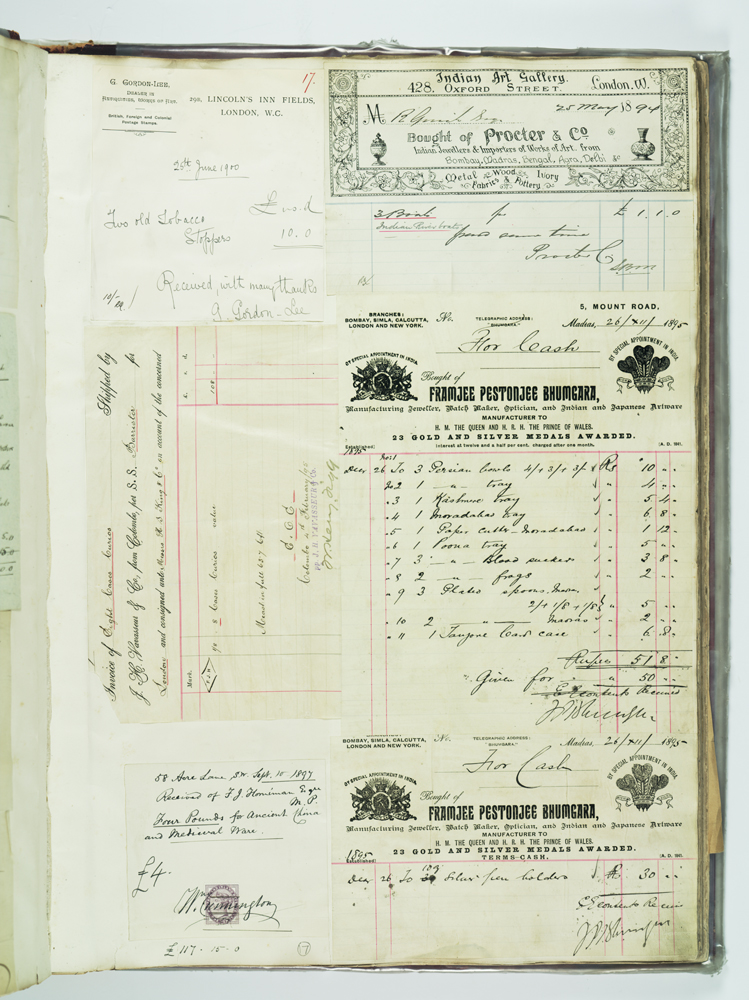 G. GORDON-LEE,
DEALER IN
ANTIQUITIES, WORKS OF ART.
British, Foreign and Colonial
Postage Stamps.
17.
290, LINCOLN'S INN FIELDS,
LONDON, W.C.
20th June 1900
£ s. d
Two old Tobacco
Stoppers 10.0
Received, with many thanks
10/-
G. Gordon-Lee
Indian Art Gallery.
428, OXFORD STREET. London, W.
25 May 1894
M
Bought of Procter & Co
Indian Jewellers & Importers of Works of Art, from
Bombay, Madras, Bengal, Agra, Delhi &c
Metal Wood Ivory
Fabrics & Pottery
3 Boats £ 1.1.0
Indian River boats
same time
Procter & Co
Invoice of Eight Cases Curios Shipped by
J. H. Vavasseur & Co, from Colombo, per S.S. Barrister for
London and consigned unto Messrs H. S. King & Co on account of the concerned
Mark.
£. s. d.
8 Cases Curios value
108
Marst in full 607 64
E. O. E.
Colombo February
pp J. H. VAVASSEUR & Co.
58 Acre Lane, SW. Sept. 10 1897
Received of F J Horniman Esqre
M.P.
Four Pounds for Ancient China
and Medieval Ware.
£4.
Wm Cunnington
£ 117 . 15 . 0
7
BRANCHES:
BOMBAY, SIMLA, CALCUTTA,
LONDON AND NEW YORK.
No.
TELEGRAPHIC ADDRESS:
"BHUMGARA."
5, MOUNT ROAD,
Madras, 26/XII/1895
For Cash
BY SPECIAL APPOINTMENT IN INDIA.
BY SPECIAL APPOINTMENT IN INDIA.
Bought of
FRAMJEE PESTONJEE BHUMGARA,
Manufacturing Jeweller, Watch Maker, Optician, and Indian and Japanese Artware
MANUFACTURER TO
H. M. THE QUEEN AND H. R. H. THE PRINCE OF WALES.
23 GOLD AND SILVER MEDALS AWARDED.
Established
Interest at twelve and a half per cent. charged after one month.
1895
Decr 26 To No 1 3 Persian bowls 4/+3/+3/- Rs 10 " "
No 2 1 " tray 4 " "
" 3 1 Kashmere tray 5 4 "
" 4 1 Moradabad tray 6 8 "
" 5 1 Paper cutter Moradabad 1 12 "
" 6 1 Poona tray 5 " "
" 7 3 " Blood sucker 3 8 "
" 8 2 " frogs 2 " "
" 9 3 Plated spoons. Madras
2/+1/8+1/8 " 5 " "
" 10 2 " Madras " 2 " "
" 11 1 Tanjore Card case 6 8 "
Rupees 51 8 "
Given for " 50 " "
Contents Received
BOMBAY, SIMLA, CALCUTTA,
LONDON AND NEW YORK.
No.
TELEGRAPHIC ADDRESS:
"BHUMGARA."
Madras, 26/XII/1895
For Cash
BY SPECIAL APPOINTMENT IN INDIA.
BY SPECIAL APPOINTMENT IN INDIA.
Bought of
FRAMJEE PESTONJEE BHUMGARA,
Manufacturing Jeweller, Watch Maker, Optician, and Indian and Japanese Artware
MANUFACTURER TO
H. M. THE QUEEN AND H. R. H. THE PRINCE OF WALES.
23 GOLD AND SILVER MEDALS AWARDED.
1895
Established
TERMS-CASH.
Decr 26 To Silver pen holders R 30 " "
Contents Receive